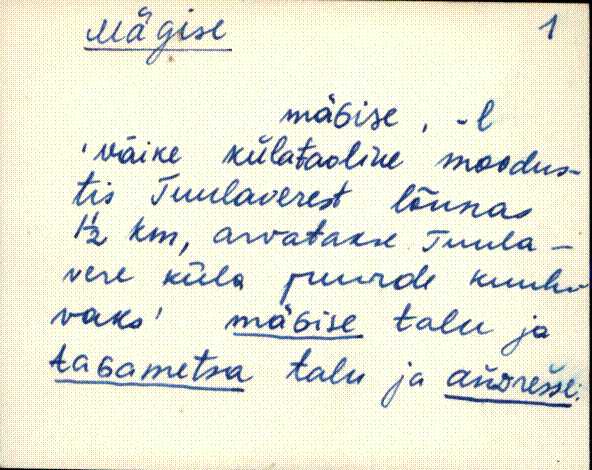 Mägise 1
mäGise, -l
'väike külataoline moodus-
tis Tuulaverest lõunas
1½ km, arvatakse Tuula-
vere küla juurde kuulu-
vaks' mäGise talu ja
taGametsa talu ja